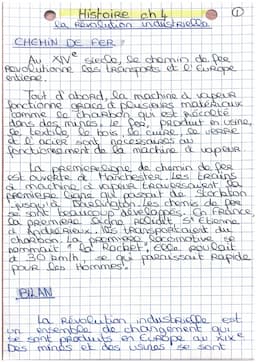 Histoire ch 4 ①
La Révolution industrielle
CHEMIN DE FER :
Au XIVe siècle, le chemin de fer
révolutionne les transports et l'Europe
entière.
Tout d'abord, la machine à vapeur
fonctionne grâce à plusieurs matériaux
comme le charbon qui est récolté
dans des mines, le fer, produit en usine,
le textile, le bois, le cuire, le verre
et l'acier sont nécessaires au
fonctionnement de la machine à vapeur.
La première ligne de chemin de fer
est ouverte à Manchester. Les trains
à machine à vapeur traversaient la
première ligne qui partait de
jusqu'à Les chemis de fer
se sont beaucoup développés. En France,
la première ligne reliait St Etienne
à Andézieux. Ils transportaient du
charbon. La première locomotive se
nommait " la Rocket", elle roulait
à 30 km/h, se qui paraissait rapide
pour les Hommes.
BILAN
La révolution industrielle est
un ensemble de changement qui
se sont produits en Europe au XIXe
Des mines et des usines se sont